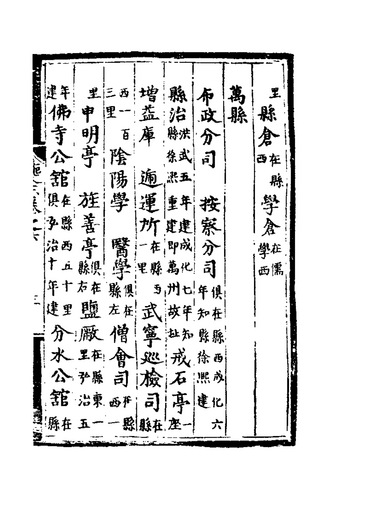 里縣倉在縣西學倉在儒學西
萬縣
布政分司按察分司俱在縣西成化六年知縣徐熙建
縣治洪武五年建成化七年知縣徐熙重建即萬州故址戒石亭一座
增益庫遞運所在縣西一里武寧巡檢司在縣
西一百三里陰陽學醫學俱在縣左僧會司在縣西一
里申明亭旌善亭俱在縣右鹽厰在縣東一里弘治五
年建佛寺公舘在縣西五十里俱弘治十年建分水公舘在縣